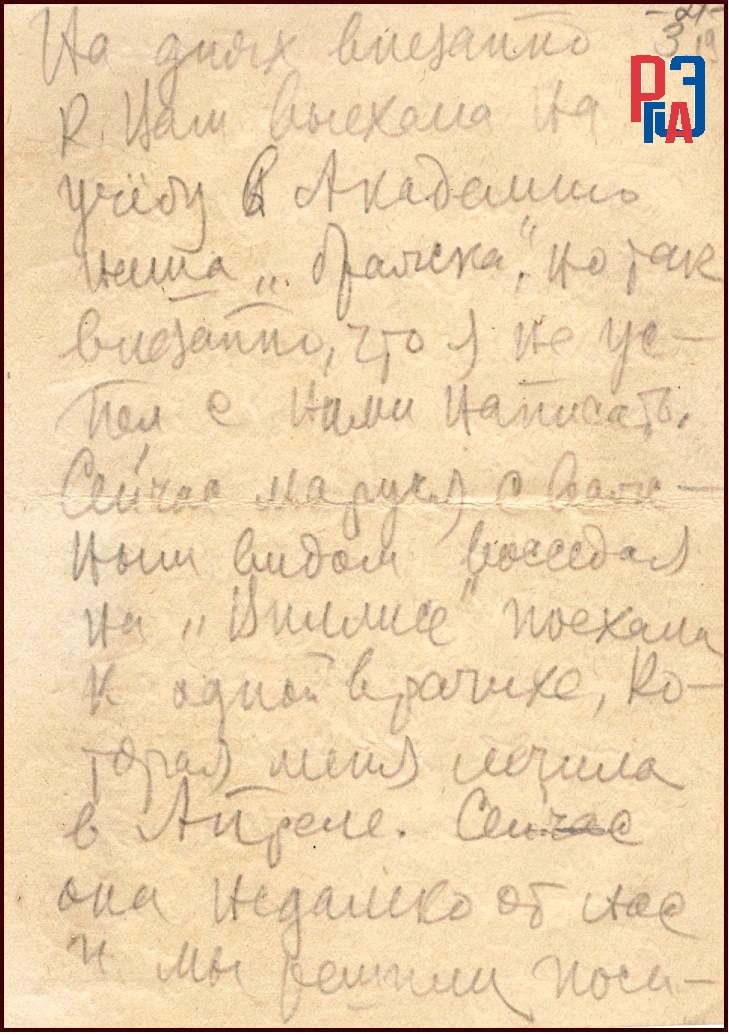 На днях внезапно
к Вам выехала на
учёбу в Академию
наша „братска", но так
внезапно, что я не ус-
пел с ними написать.
Сейчас Маруся с важ-
ным видом восседая
на „Виллисе" поехала
к одной врачихе, ко-
торая меня лечила
в Апреле. Сейчас
она недалеко от нас
и мы решили поси-
РГАЭ